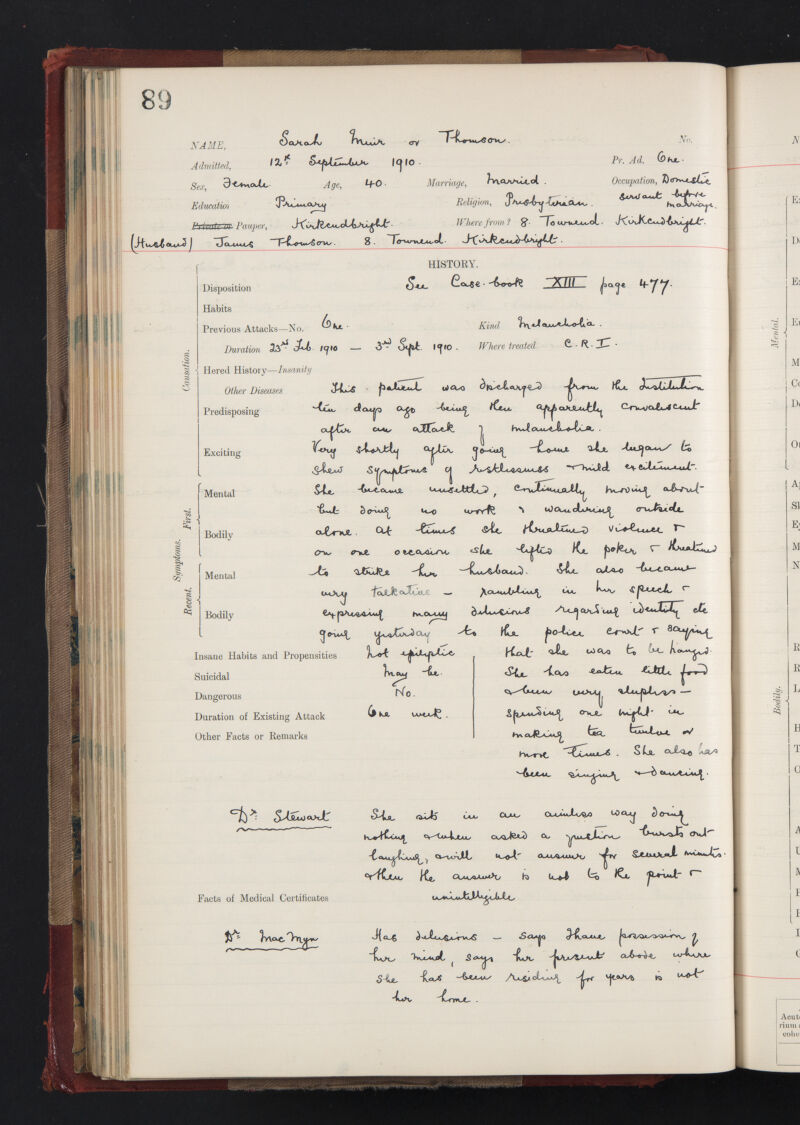 89
NAME, Sarah Muir or Thomson. No.
Admitted, 12th September 1910. Pr. Ad. One.
Sex, Female Age, 40. Marriage, Married. Occupation, Domestic
Education Primary Religion, Presbyterian. servant before marriage.
Private or Pauper, Kirkcudbright. Where from? 8. Townend. Kirkcudbright.
(Husband) James Thomson. 8. Townend. Kirkcudbright.
HISTORY.
Disposition See Case-book XIII page 477.
Habits
Previous Attacks—No. One. Kind Melancholia.
Duration 23rd Feb. 1910 — 3rd Sept. 1910. Where treated C.R.I.
Causation.
Hered History—Insanity
Other Diseases This patient was discharged from the Institution
Predisposing ten days ago being then apparently convalescent
after an attack of melancholia.
Exciting Very shortly after going home she began to
shew symptoms of restlessness & mild excitement.
Symptoms. First.
Mental She became unsettled, continually moving about
but doing no work & wandering outside
Bodily alone. At times she threatened violence &
on one occasion she lifted the poker & threatened
Recent.
Mental to strike her husband. She also became
very talkative — rambling in her speech &
Bodily expressing many delusions regarding identity etc
going yesterday to the police court & saying
Insane Habits and Propensities Not epileptic that she was to be hanged.
Suicidal May be. She has eaten little food
Dangerous No. & been very sleepless —
Duration of Existing Attack One week. spending one night in
Other Facts or Remarks making tea twelve or
more times. She also has
been singing & dancing.
Dr. Stewart She sits in an aimless way doing
nothing & when asked a question bursts out
laughing, & will not answer for several minutes.
& then the answer is not to the point &
Facts of Medical Certificates unintelligible
Dr. MacMyn Has delusions — says I have possession of
her mind, says her present abode where
she has been residing for years is not
her home.
Mental.
Bodily.